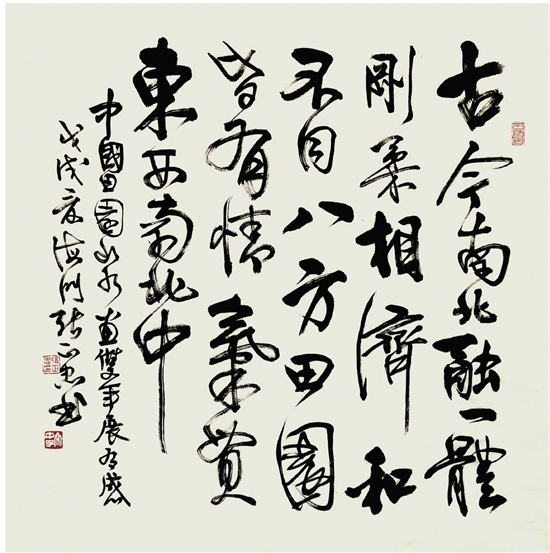 古今南北融一體
剛柔相濟和
不同八方田園
皆有情氣貫
東西南北中
中國田園山水畫雙年展有感
戊戌夏海門張書